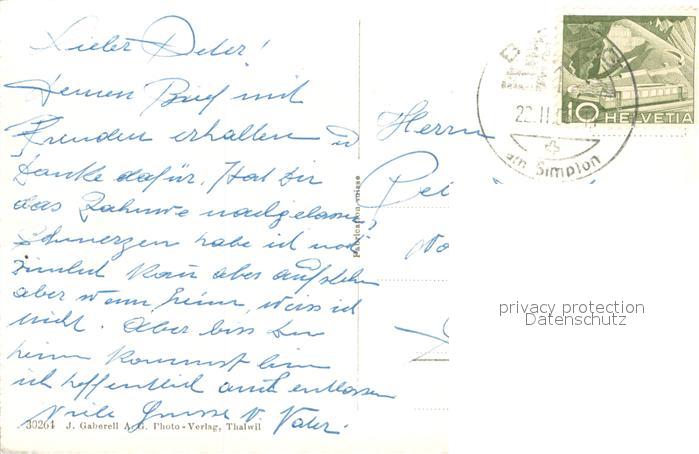 Lieber Peter!
Deinen Brief mit
Freuden erhalten u
danke dafür. Hat Dir
das Zahnwe nachgelassen?
Schmerzen habe ich noch
zimlich kan aber aufstehn
aber wenn heim, weiss ich
nicht. Aber biss Du
heim kommst bin
ich hoffentlich auch entlassen
Viele Grüsse V. Vater.
30264 J. Gaberell A. G. Photo-Verlag, Thalwil
Fabrication suisse
Herrn
Pe
am Simplon
10 HELVETIA
privacy protection
Datenschutz